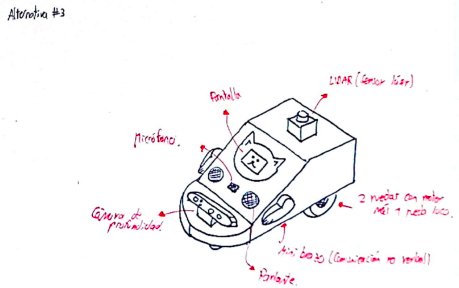 Alternativa #3
LIDAR (Sensor láser)
Pantalla
Micrófono.
Cámara de
profundidad.
2 ruedas con motor
más 1 rueda loca.
Mini brazo (Comunicación no verbal)
Parlante.